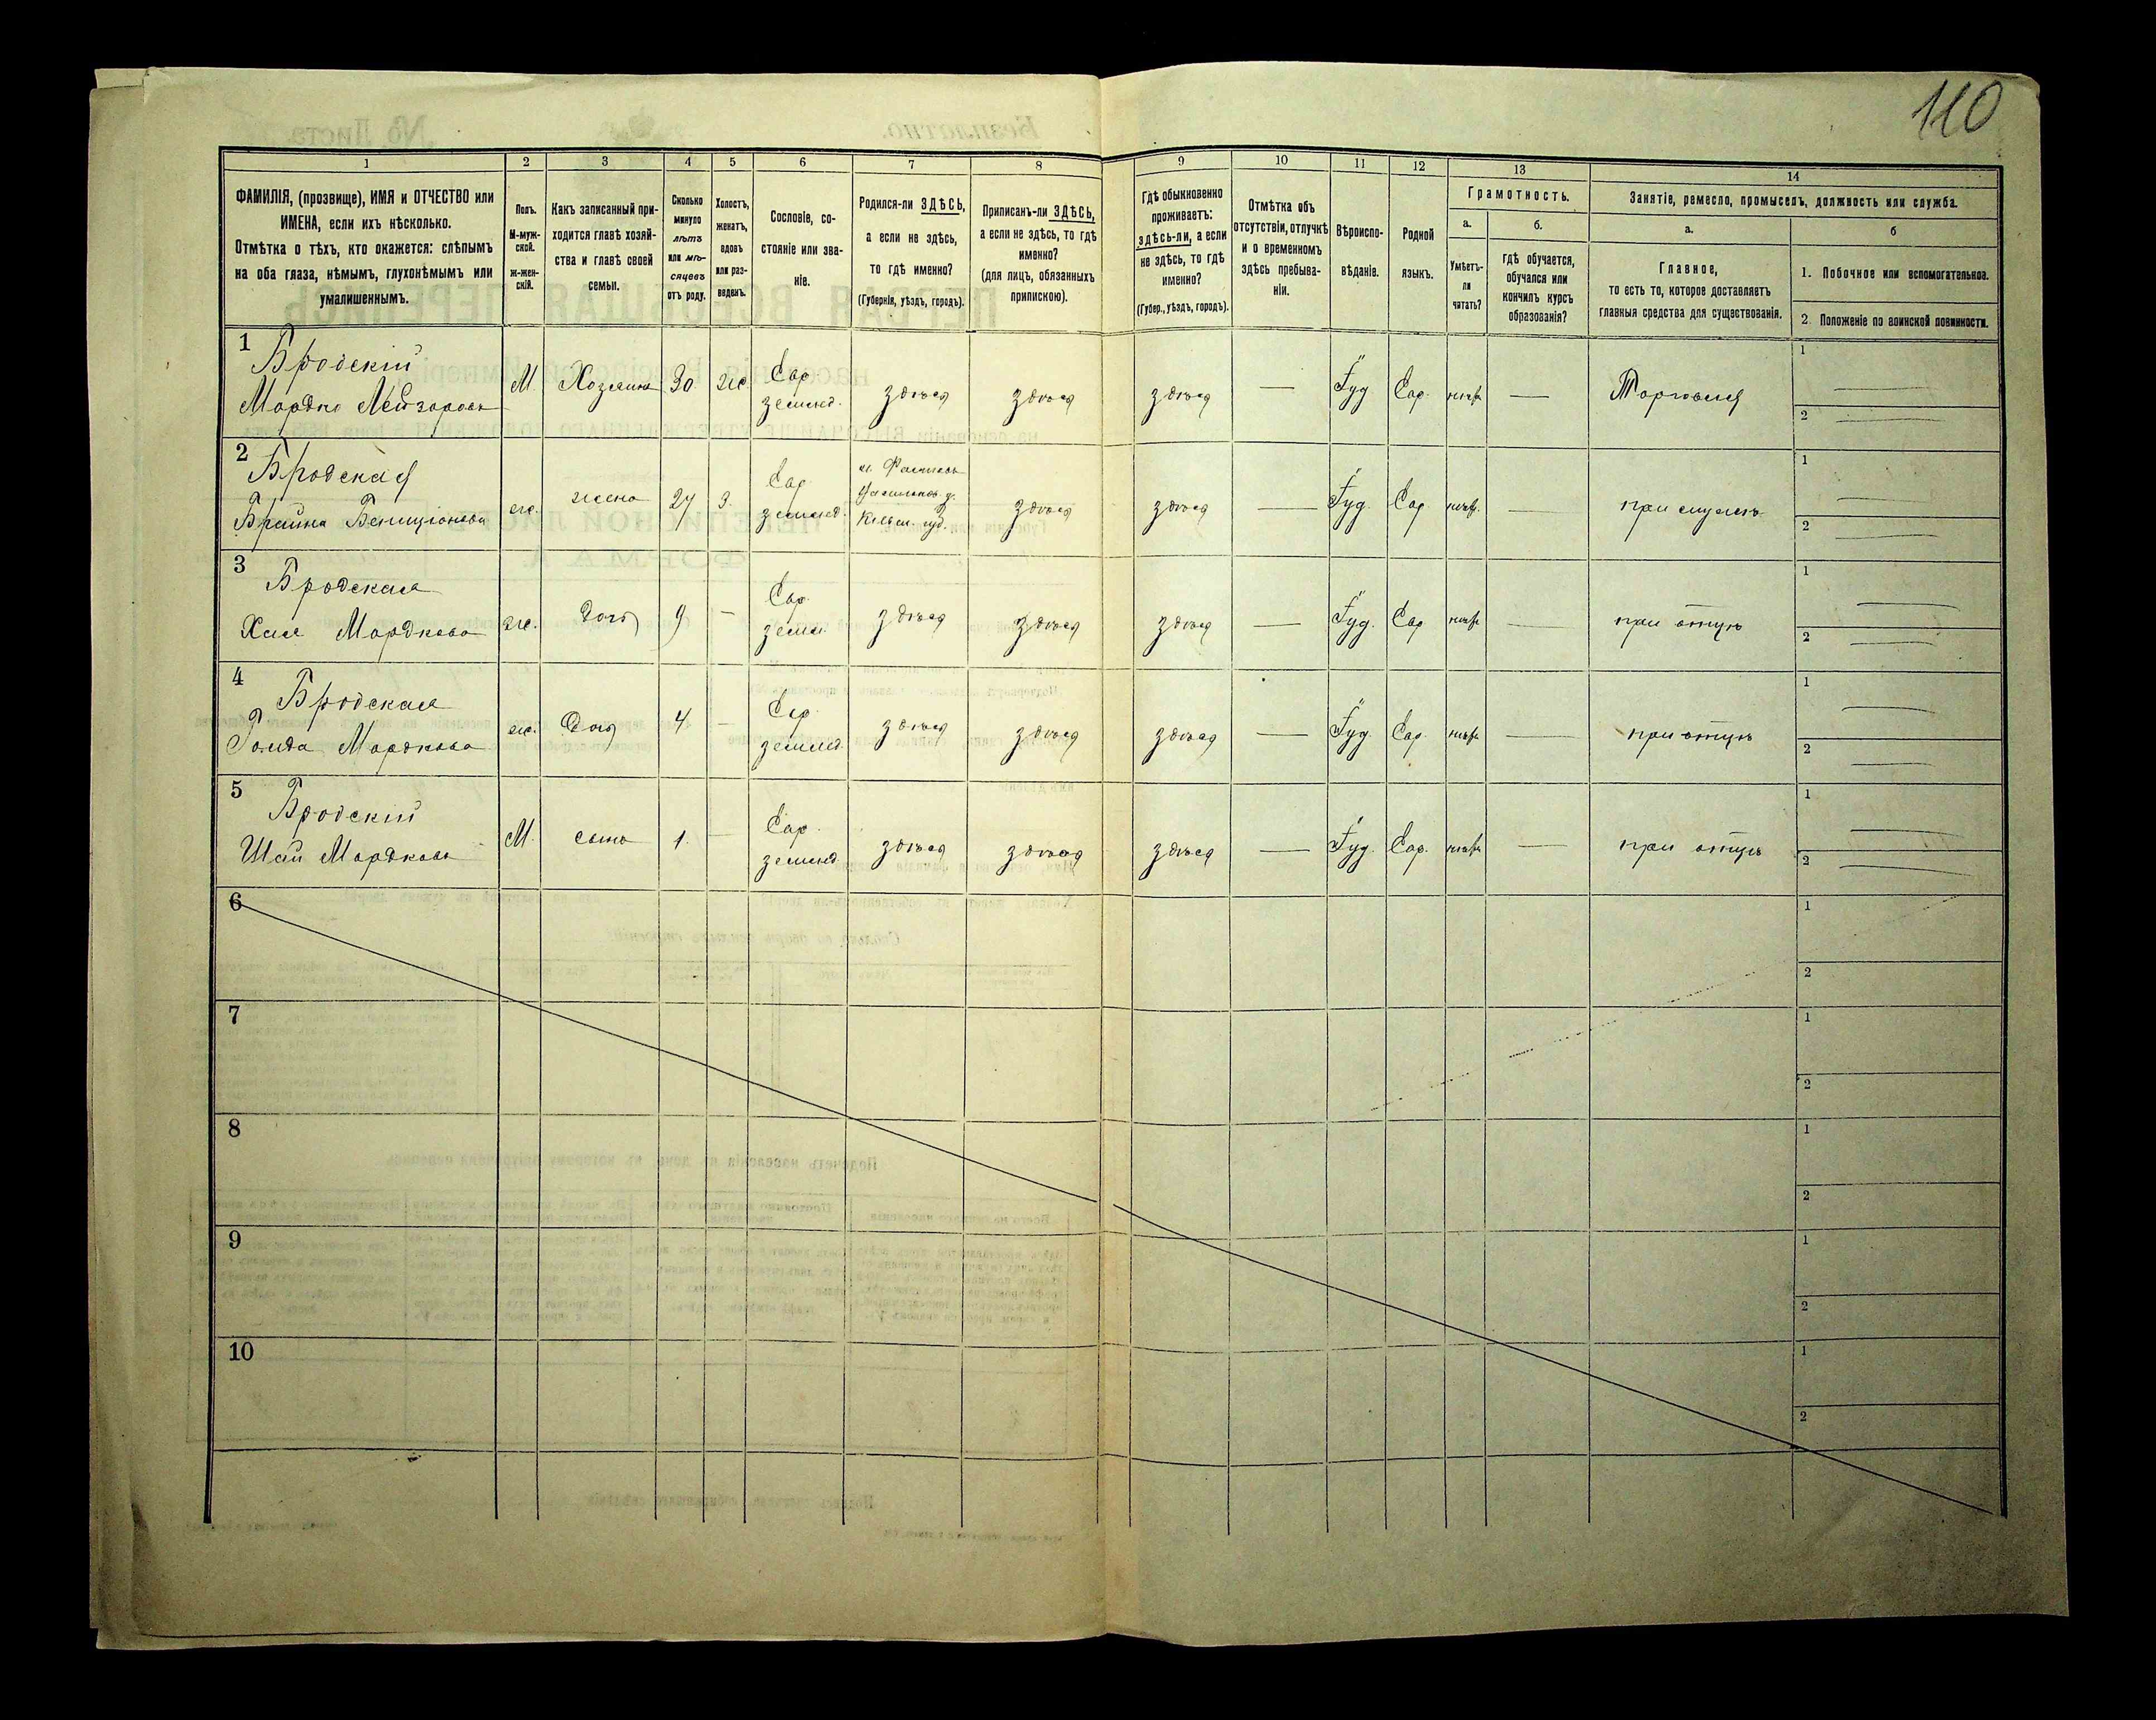 110
1
2
3
4
5
6
7
8
9
10
11
12
13
14
ФАМИЛІЯ, (прозвище), ИМЯ и ОТЧЕСТВО или
ИМЕНА, если ихъ нѣсколько.
Отмѣтка о тѣхъ, кто окажется: слѣпымъ
на оба глаза, нѣмымъ, глухонѣмымъ или
умалишеннымъ.
Полъ.
М-муж-
ской.
ж-жен-
скій.
Какъ записанный при-
ходится главѣ хозяй-
ства и главѣ своей
семьи.
Сколько
минуло
лѣтъ
или мѣ-
сяцевъ
отъ роду.
Холостъ,
женатъ,
вдовъ
или раз-
веденъ.
Сословіе, со-
стояніе или зва-
ніе.
Родился-ли ЗДѢСЬ,
а если не здѣсь,
то гдѣ именно?
(Губернія, уѣздъ, городъ).
Приписанъ-ли ЗДѢСЬ,
а если не здѣсь, то гдѣ
именно?
(для лицъ, обязанныхъ
припискою).
Гдѣ обыкновенно
проживаетъ:
здѣсь-ли, а если
не здѣсь, то гдѣ
именно?
(Губер., уѣздъ, городъ).
Отмѣтка объ
отсутствіи, отлучкѣ
и о временномъ
здѣсь пребыва-
ніи.
Вѣроиспо-
вѣданіе.
Родной
языкъ.
Грамотность.
а.
Умѣетъ-
ли
читать?
б.
гдѣ обучается,
обучался или
кончилъ курсъ
образованія?
Занятіе, ремесло, промыселъ, должность или служба.
а.
Главное,
то есть то, которое доставляетъ
главныя средства для существованія.
б
1. Побочное или вспомогательное.
2. Положеніе по воинской повинности.
1
Бродскій
Мордко Лейзеровъ
М.
Хозяинъ
30
же
Евр.
землед.
здѣсь
здѣсь
здѣсь
Іуд
Евр.
Торговля
1
2
2
Бродская
Брайна Бенціонова
же.
жена
27
З.
Евр.
землед.
м. Фастовъ
Васильков. у.
Кіевск. губ.
здѣсь
здѣсь
Іуд.
Евр
при мужѣ
1
2
3
Бродская
Хая Мордкова
же.
дочь
9
Евр.
землед.
здѣсь
здѣсь
здѣсь
Іуд.
Евр
при отцѣ
1
2
4
Бродская
Голда Мордкова
же.
дочь
4
Евр.
землед.
здѣсь
здѣсь
здѣсь
Іуд.
Евр.
при отцѣ
1
2
5
Бродскій
Шая Мордковъ
М.
сынъ
1.
Евр.
землед.
здѣсь
здѣсь
здѣсь
Іуд.
Евр.
при отцѣ
1
2
6
1
2
7
1
2
8
1
2
9
1
2
10
1
2